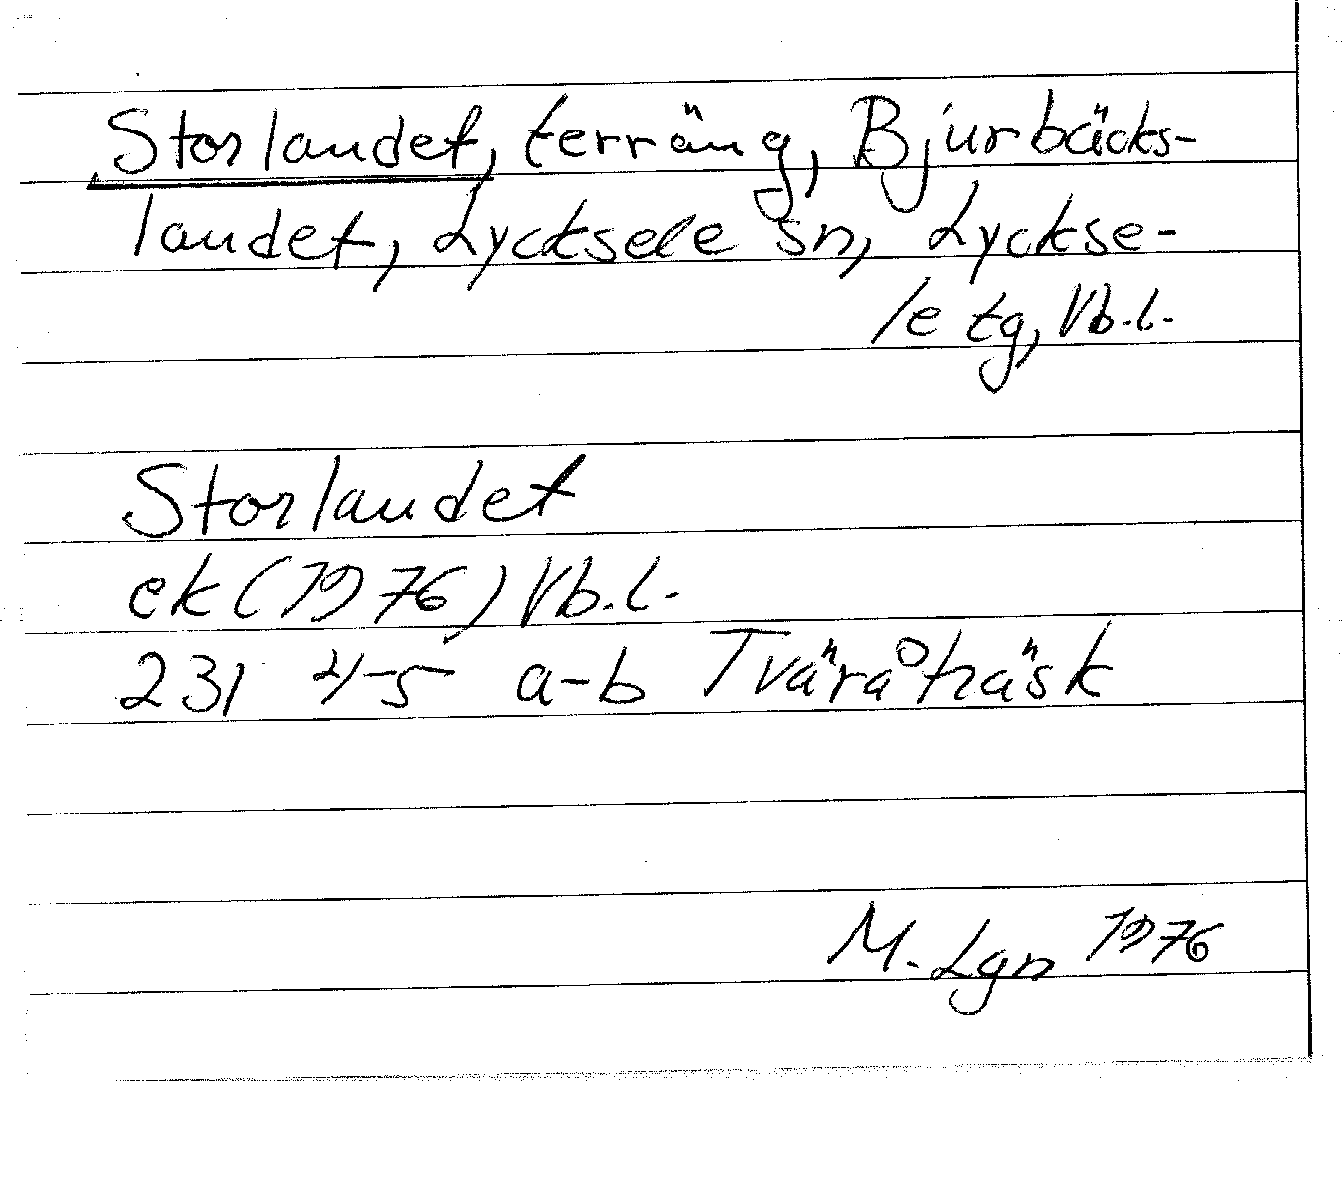 Storlandet, terräng, Bjurbäcks-
landet, Lycksele sn, Lyckse-
le tg, Vb.l.
Storlandet
ek (1976) Vb.l.
231 4-5 a-b Tväråträsk
M. Lgn 1976